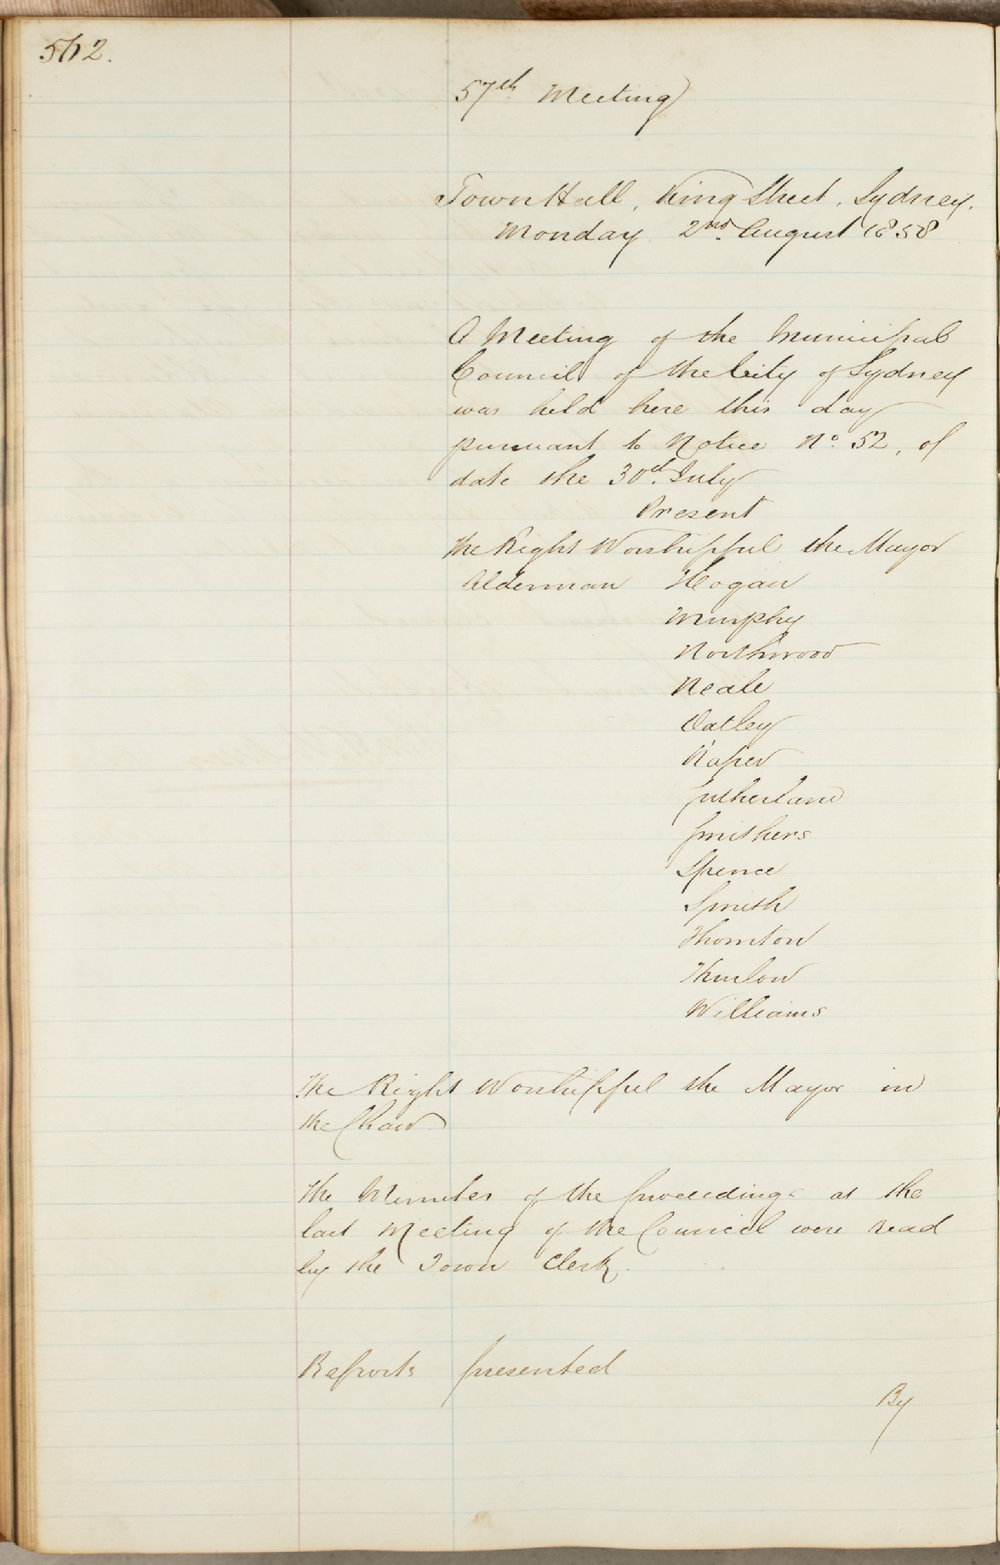 562.
57th Meeting
Town Hall, King Street, Sydney.
Monday 2nd August 1858
A Meeting of the Municipal
Council of the City of Sydney
was held here this day
pursuant to Notice No. 52, of
date the 30th July
Present
The Right Worshipful the Mayor
Alderman Hogan
Murphy
Northwood
Neale
Oatley
Raper
Sutherland
Smithers
Spence
Smith
Thornton
Thurlow
Williams
The Right Worshipful the Mayor in
the Chair
The Minutes of the proceedings at the
last Meeting of the Council were read
by the Town Clerk.
Reports presented
By